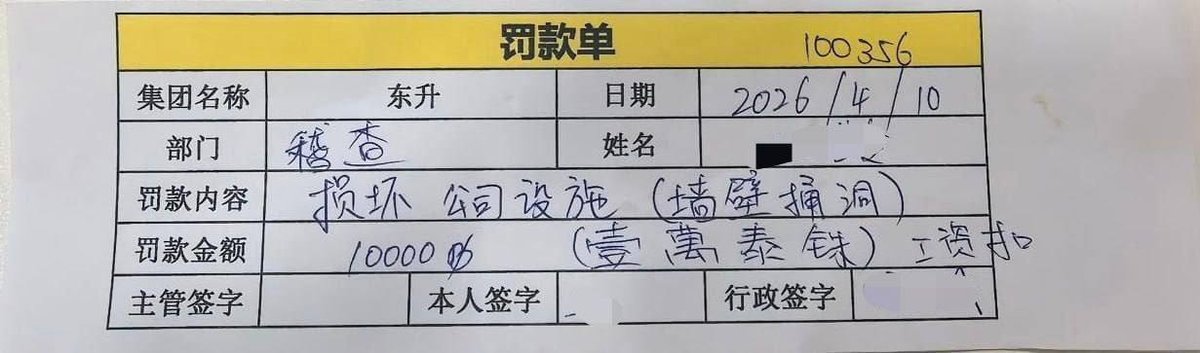 罚款单 100356
集团名称 东升 日期 2026/4/10
部门 稽查 姓名
罚款内容 损坏公司设施(墙壁捅洞)
罚款金额 10000฿ (壹萬泰铢)工资扣
主管签字 本人签字 行政签字